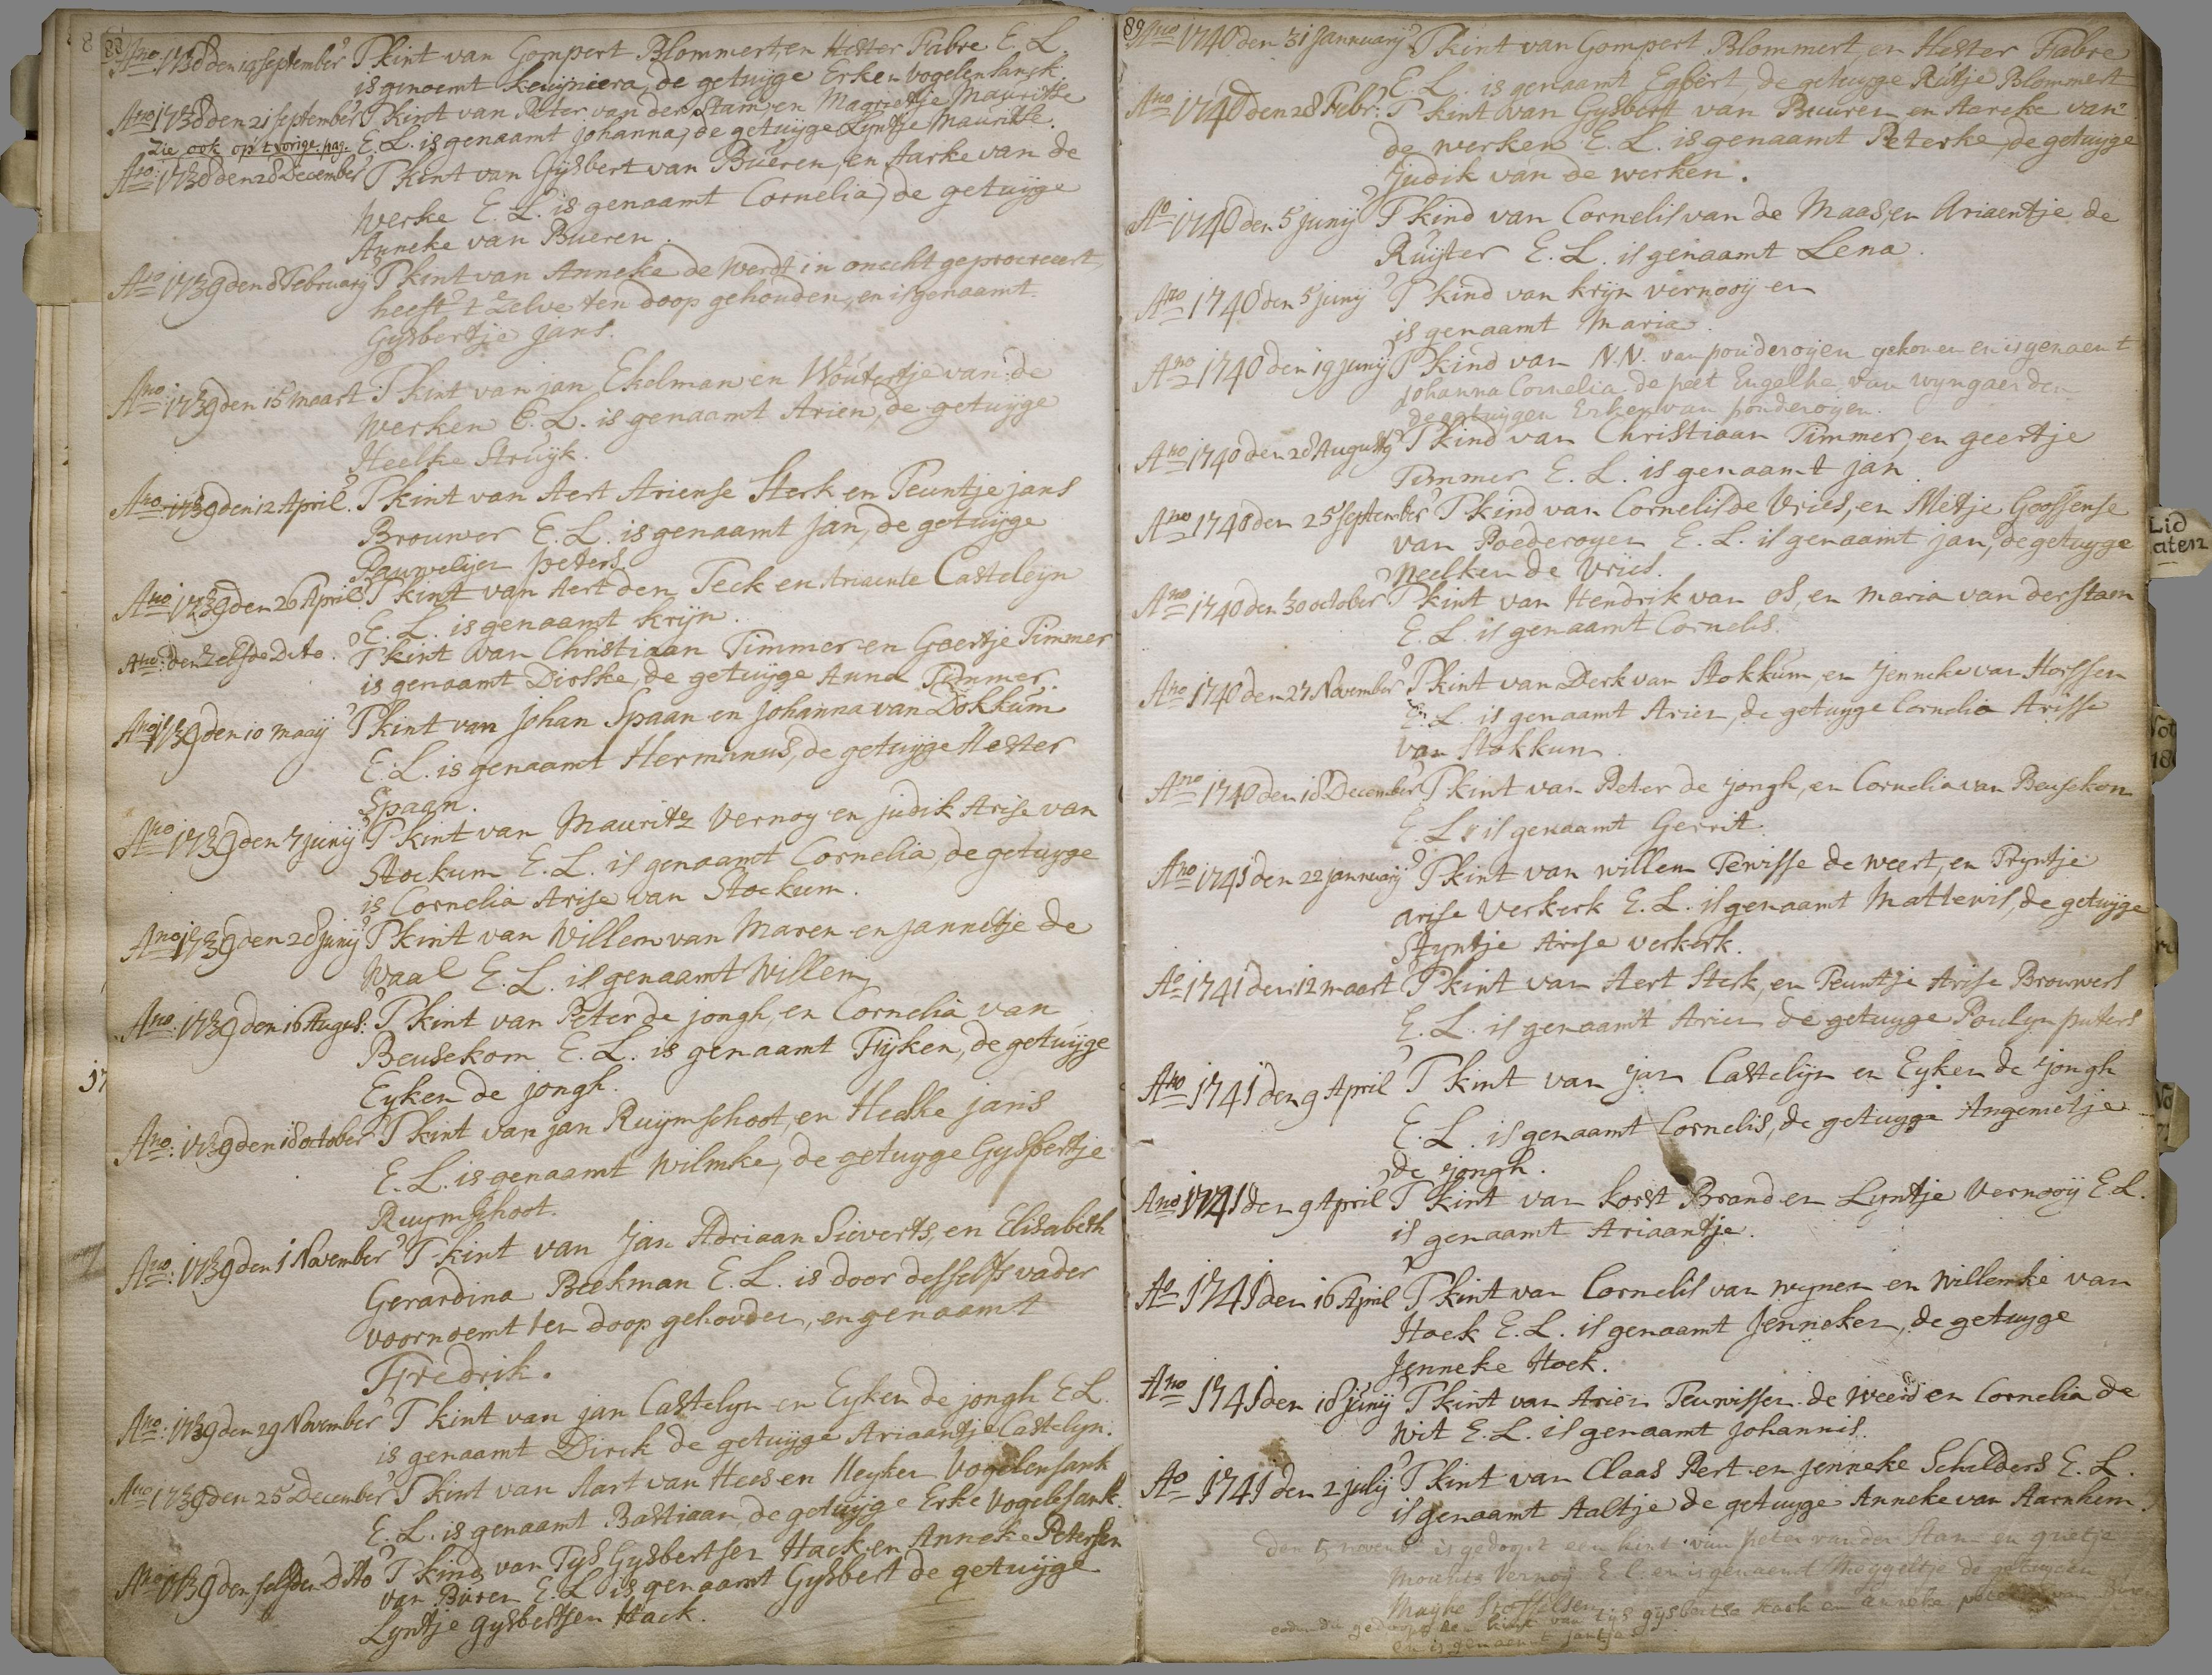 88
Ano. 1738 den 14 september 'T kint van Gompert Blommert, en Hester Fabre E. L.
is genoemt keuijniera, de getuijge Erken vogelensansk.
Ano 1738 den 21 september 'T kint van Peter van der Stam en Magrietje Mauritse
Zie ook op 't vorige pag. E. L. is genaamt Johanna, de getuijge Lijntje Mauritse.
Ano. 1738 den 28 December 'T kint van Gijsbert van Bueren, en Aarke van de
Werke E. L. is genaamt Cornelia, de getuijge
Anneke van Bueren.
Ano 1739 den 8 February 'T kint van Anneke de Werdt in onecht geprocreert,
heeft 't zelve ten doop gehouden, en is genaamt
Gysbertje Jans.
Ano. 1739 den 15 maart 'T kint van jan Ekelman en Woutertje van de
Werken E. L. is genaamt Arien, de getuijge
Heelke Struyk.
Ano. 1739 den 12 April. 'T kint van Aert Ariense Sterk en Teuntje jans
Brouwer E. L. is genaamt Jan, de getuijge
Pauwelijn peters.
Ano 1739 den 26 April 'T kint van Aert den Teck en Ariaente Casteleijn
E. L. is genaamt krijn.
Ano: den zelfde Dito. 'T kint van Christiaan Timmer en Geertje Timmer
is genaamt Dirske, de getuijge Anna Timmer.
Ano 1739 den 10 maaij 'T kint van Johan Spaan en Johanna van Dokkum
E. L. is genaamt Hermanus, de getuijge Hester
Spaan.
Ano 1739 den 7 junij 'T kint van Mauritz Vernoy en judik Arise van
Stockum E. L. is genaamt Cornelia, de getuijge
is Cornelia Arise van Stockum.
Ano 1739 den 28 junij 'T kint van Willem van Maren en Jannetje de
Waal E. L. is genaamt Willem,
Ano. 1739 den 16 Augus: 'T kint van Peter de jongh, en Cornelia van
Beusekom E. L. is genaamt Fijken, de getuijge
Eyken de jongh.
Ano: 1739 den 18 october 'T kint van jan Ruijmschoot, en Heelke jans
E. L. is genaamt Wilmke, de getuyge Gysbertje
Ruymschoot.
Ano: 1739 den 1 November 'T kint van Jan Adriaan Sieverts, en Elisabeth
Gerardina Beekman E. L. is door desselfs vader
voornoemt ten doop gehouden, en genaamt
Fredrik.
Ano: 1739 den 29 November 'T kint van jan Castelyn en Eyken de jongh E L.
is genaamt Dirck de getuijge Ariaantje Castelyn.
Ano 1739 den 25 December 'T kint van Aart van Hees en Heyken Vogelensank
E. L. is genaamt Bastiaan, de getuijge Erke Vogelesank.
Ano 1739 den selfden Dito 'T kind van Tys Gysbertsen Hack en Anneke Petersen
van Buren E. L. is genaamt Gysbert de getuijge
Lyntje gysbertsen Hack.
89
Ano 1740 den 31 Jannuarij 'T kint van Gompert Blommert, en Hester Fabre
E. L. is genaamt Egbert de getuijge Rutje Blommert
Ano 1740 den 28 Febr: 'T kint van Gysbert van Bueren en Aereke van
de werken E. L. is genaamt Peterke, de getuijge
Judik van de werken.
Ao 1740 den 5 junij 'T kind van Cornelis van de Maas, en Ariaentje de
Ruijter E. L. is genaamt Lena.
Ano 1740 den 5 junij 'T kind van krijn vernooij en
is genaamt Maria.
Ano 1740 den 19 junij 'T kind van N.N. van pouderoijen gekomen en is genaemt
Johanna Cornelia de peet Engelke van wyngaerden
de getuijgen Erken van pouderoijen.
Ano 1740 den 28 Augusty 'T kind van Christiaan Timmer, en geertje
Timmer E. L. is genaamt jan.
Ano 1740 den 25 september 'T kind van Cornelis de Vries, en Metje Goossense
van Poederoyen E. L. is genaamt jan, de getuyge
Neelken de Vries.
Ano 1740 den 30 october 'T kint van Hendrik van os, en maria van der staen
E. L. is genaamt Cornelis.
Ano 1740 den 27 November 'T kint van Derk van Stokkum, en Jenneke van Horssen
E. L. is genaamt Arien, de getuyge Cornelia Arisse
van Stokkum.
Ano 1740 den 18 December 'T kint van Peter de Jongh, en Cornelia van Beusekom
E. L. is genaamt Gerrit.
Ano 1741 den 22 jannuarij 'T kint van willem Tewisse de weert, en Tryntje
arise Verkerk E. L. is genaamt Mattewis, de getuijge
Styntje Arise verkerk.
Ao 1741 den 12 maart 'T kint van Aert Sterk, en Teuntje Arise Brouwers
E. L. is genaamt Arien de getuyge Poulyn puters
Ano 1741 den 9 April 'T kint van Jan Castelijn en Eyken de Jongh
E. L. is genaamt Cornelis, de getuyge Angenietje
de Jongh.
Ano 1741 den 9 April 'T kint van korst Brand en Lyntje Vernooij E. L.
is genaamt Ariaantje.
Ao 1741 den 16 April 'T kint van Cornelis van wynen en Willemke van
Hoek E. L. is genaamt Jenneken, de getuyge
Jenneke Hoek.
Ano 1741 den 18 junij 'T kint van Arien Teuwissen de Weerd en Cornelia de
Wit E. L. is genaamt Johannis.
Ao 1741 den 2 julij 'T kint van Claas Pert en Jenneke Schelders E. L.
is genaamt Aaltje de getuyge Anneke van Aarnhem.
den 5 novemb is gedoopt een kint van peter van der Stam en grietje
Mourits Vernoy E. L. en is genaemt Meyggeltje de getuigen
Mayke Stoffelsen
gedoopt een kint van tijs gijsbertse hack en anneke van Buren
en is genaemt jantje
Lid
aten
18
17